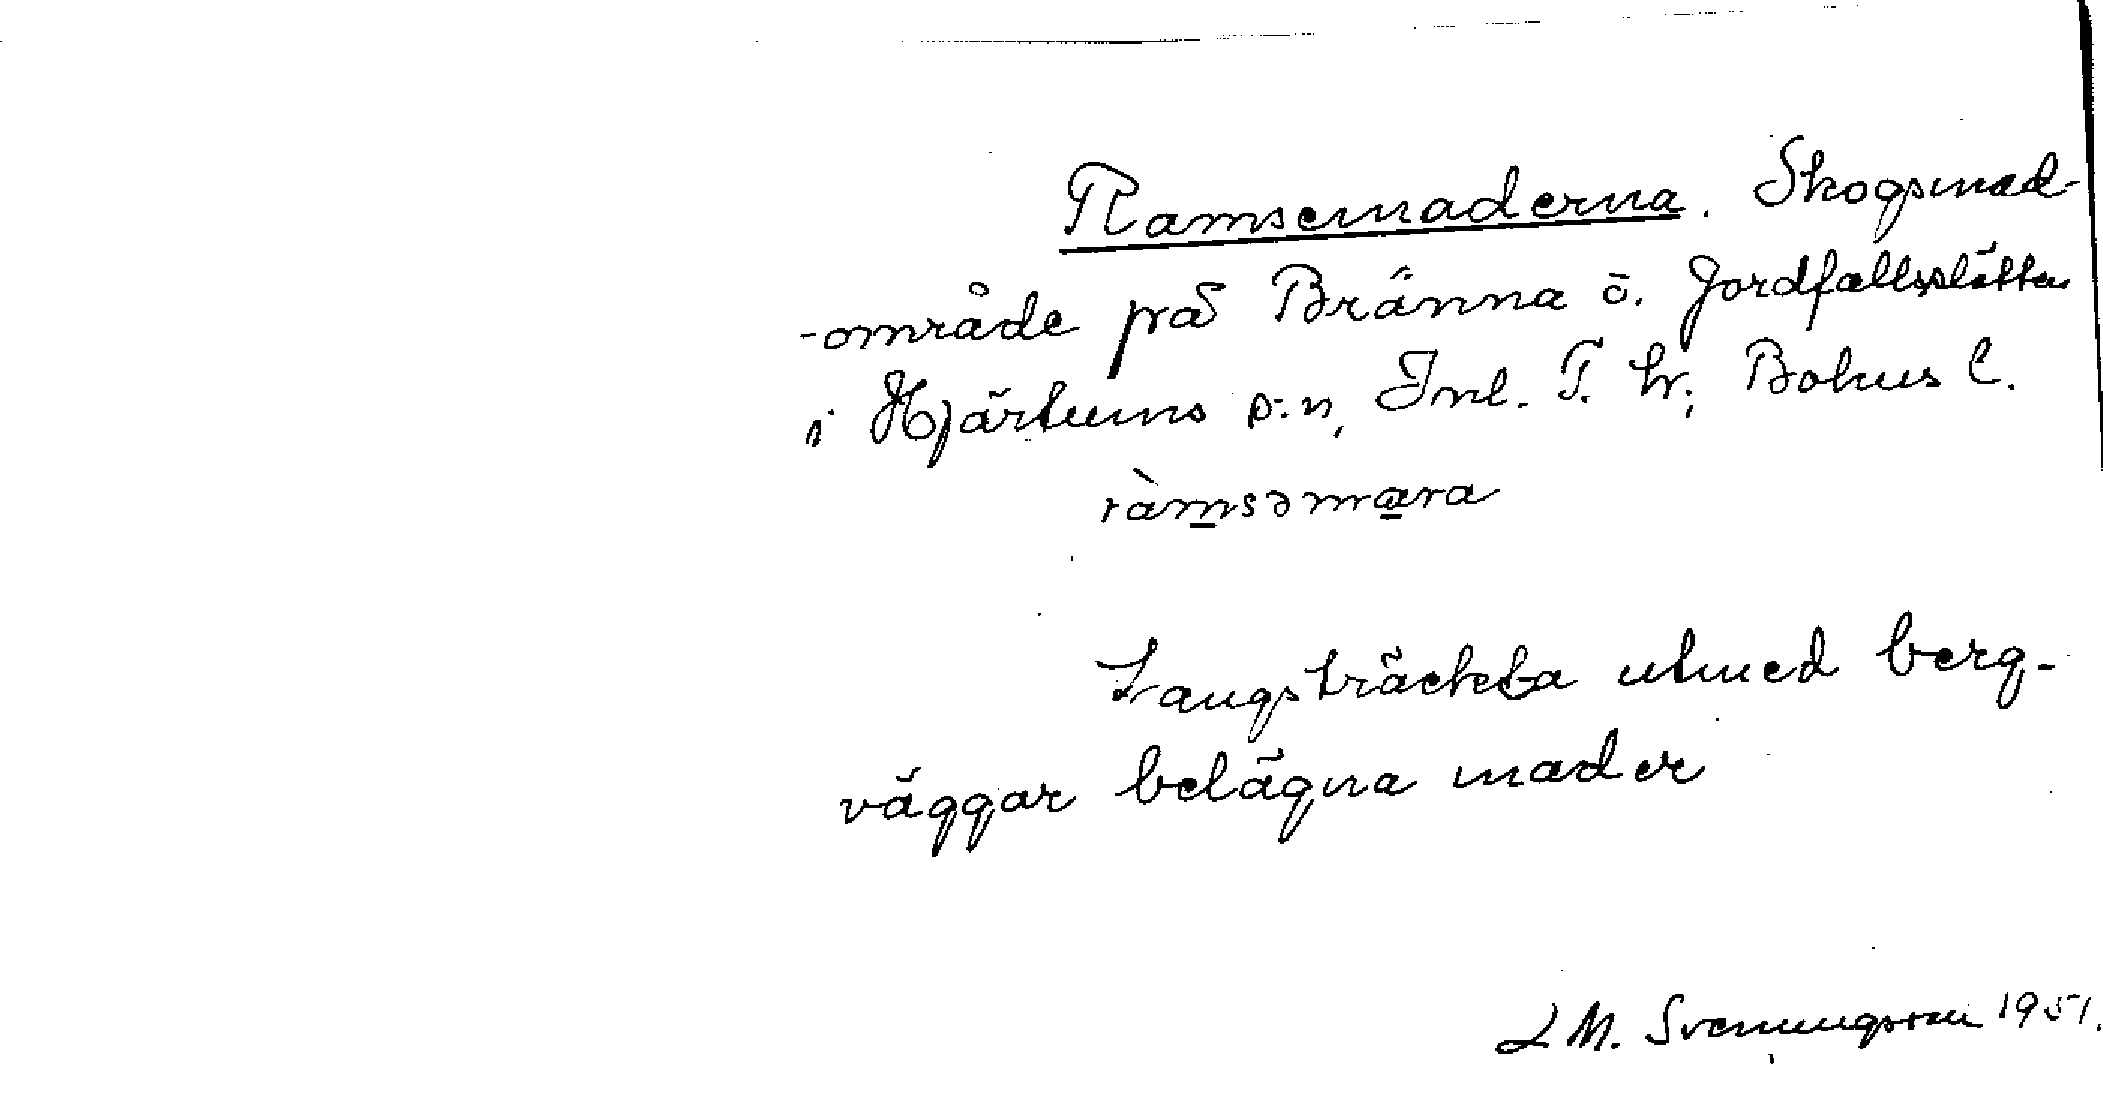 Ramsemaderna. Skogsmad-
-område på Bränna ö. Jordfallsslätten
i Hjärtums s:n, Inl. T. hr; Bohus l.
ràmsəmara
Langsträckta utmed berg-
väggar belägna mader
L M. Svenungsson 1951.